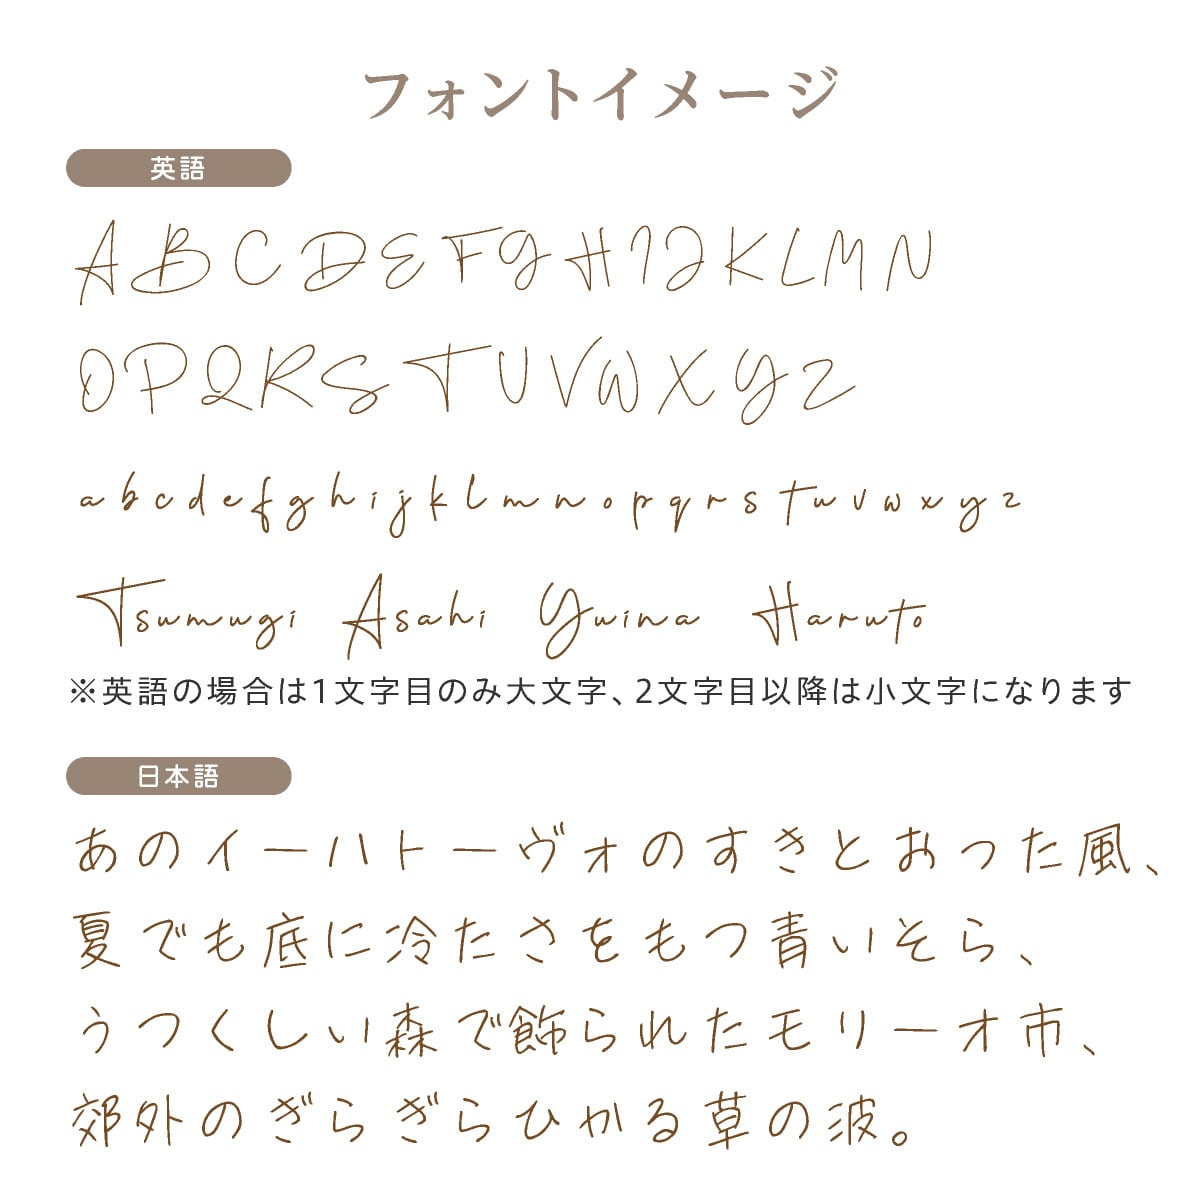 フォントイメージ
英語
A B C D E F G H I J K L M N
O P Q R S T U V W X Y Z
a b c d e f g h i j k l m n o p q r s t u v w x y z
Tsumugi Asahi Yuina Haruto
※英語の場合は1文字目のみ大文字、2文字目以降は小文字になります
日本語
あのイーハトーヴォのすきとおった風、
夏でも底に冷たさをもつ青いそら、
うつくしい森で飾られたモリーオ市、
郊外のぎらぎらひかる草の波。